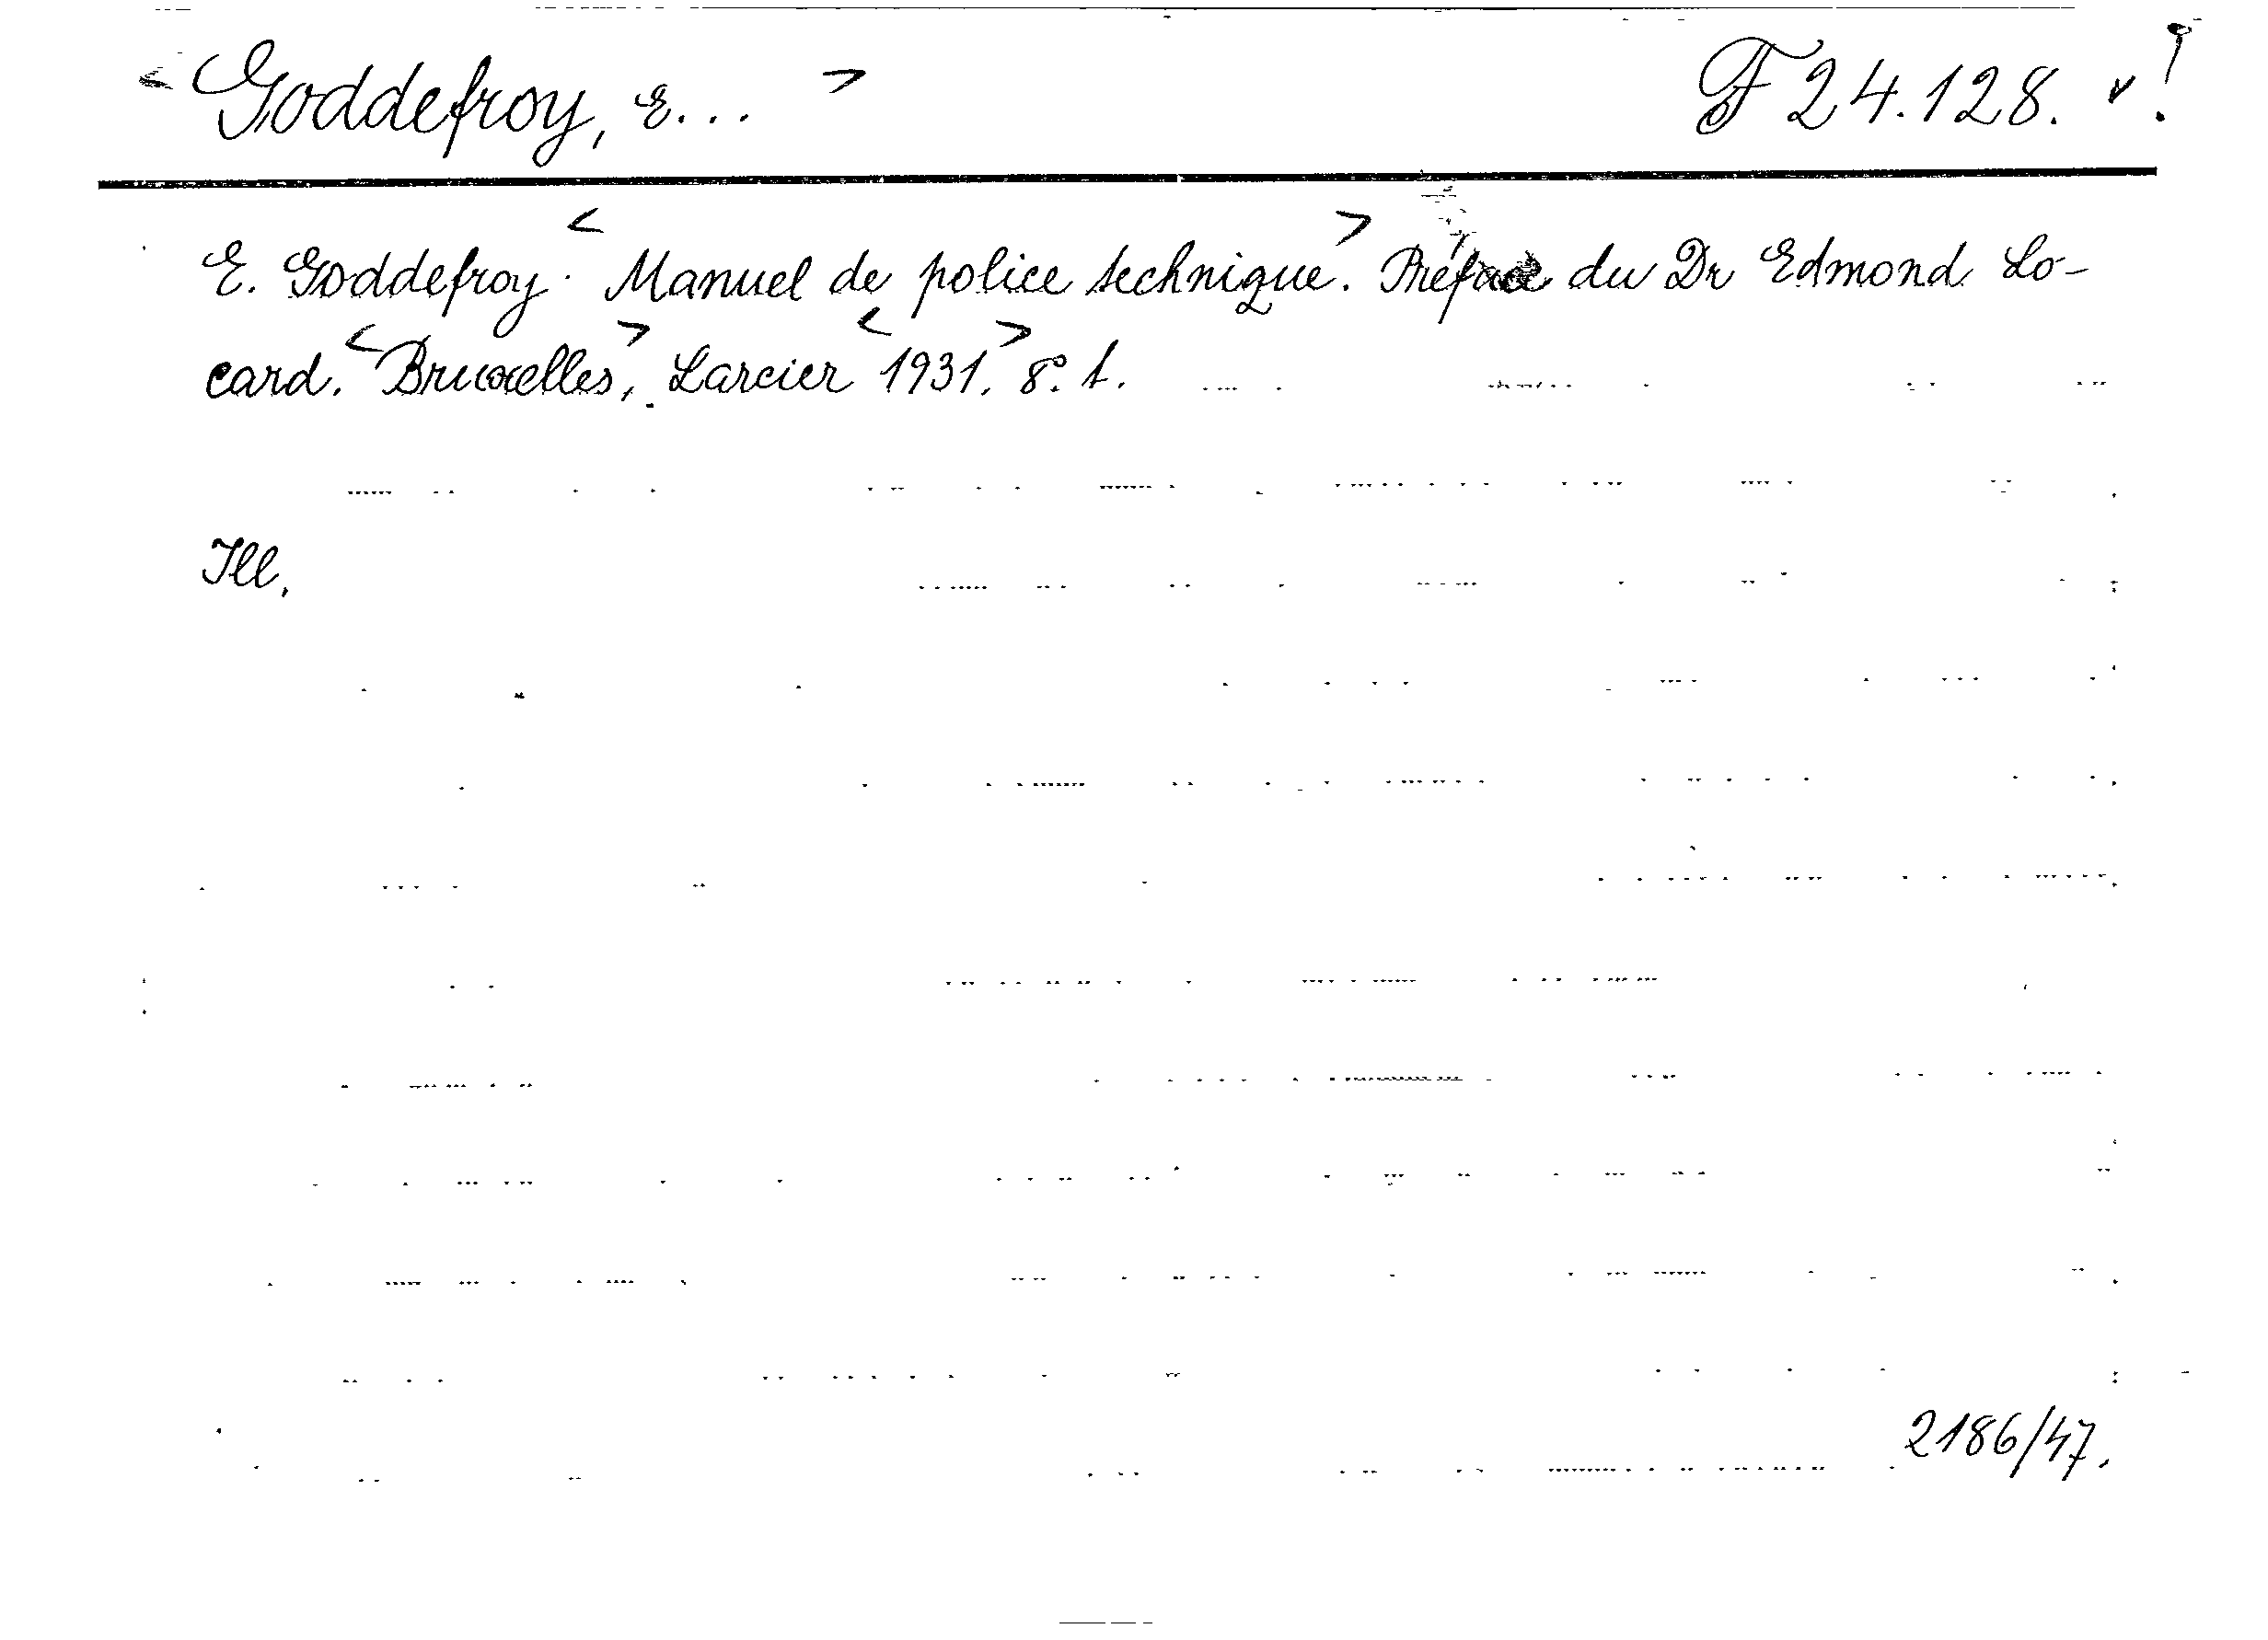 <Goddefroy, E...> F 24.128. v!
E. Goddefroy. <Manuel de police technique>. Préface du Dr Edmond Lo-
card. <Bruxelles>, Larcier <1931.> 8°. 1.
Ill.
2186/47.